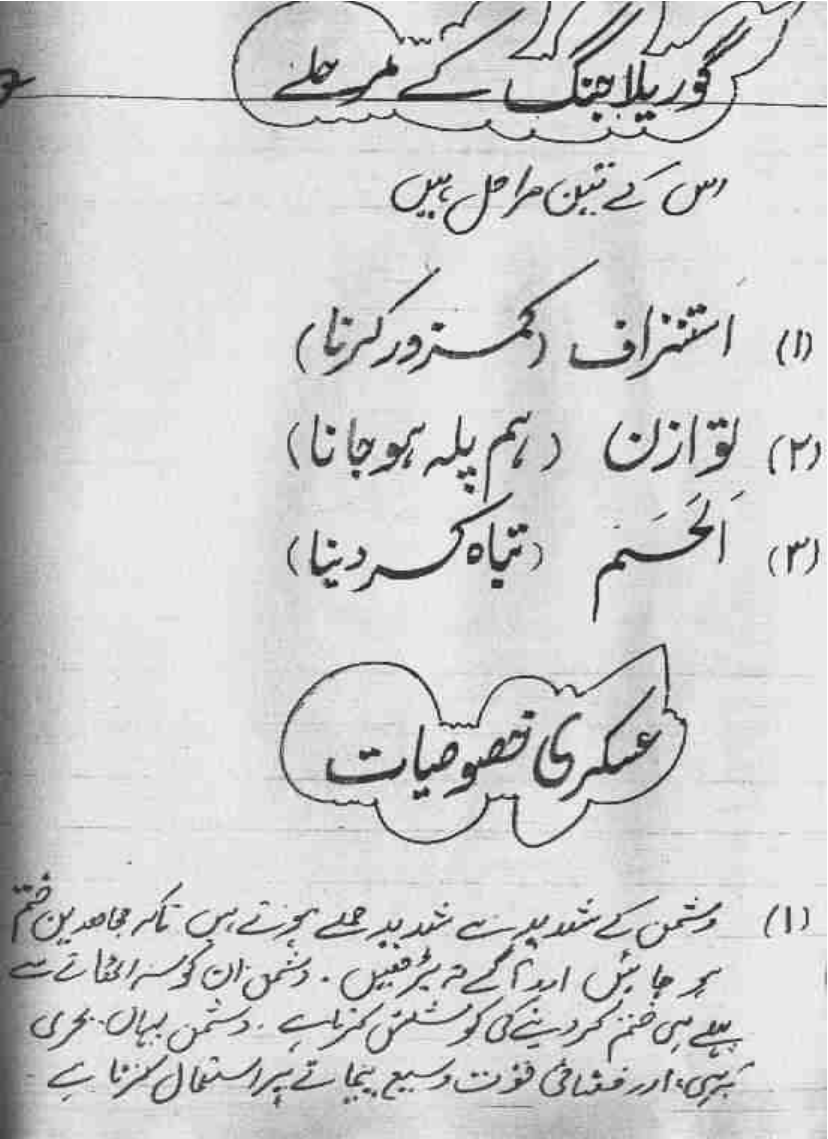 گوریلا جنگ کے مرحلے
اس کے تین مراحل ہیں
(۱) استنزاف (کمزور کرنا)
(۲) توازن (ہم پلہ ہو جانا)
(۳) اَلحَسَم (تباہ کر دینا)
عسکری خصوصیات
(۱) دشمن کے شدید سے شدید حملے ہوتے ہیں تاکہ مجاہدین ختم
ہو جائیں اور آگے نہ بڑھیں۔ دشمن ان کو سر اٹھانے سے
پہلے ہی ختم کر دینے کی کوشش کرتا ہے۔ دشمن یہاں بحری
بری، اور فضائی قوت وسیع پیمانے پر استعمال کرتا ہے